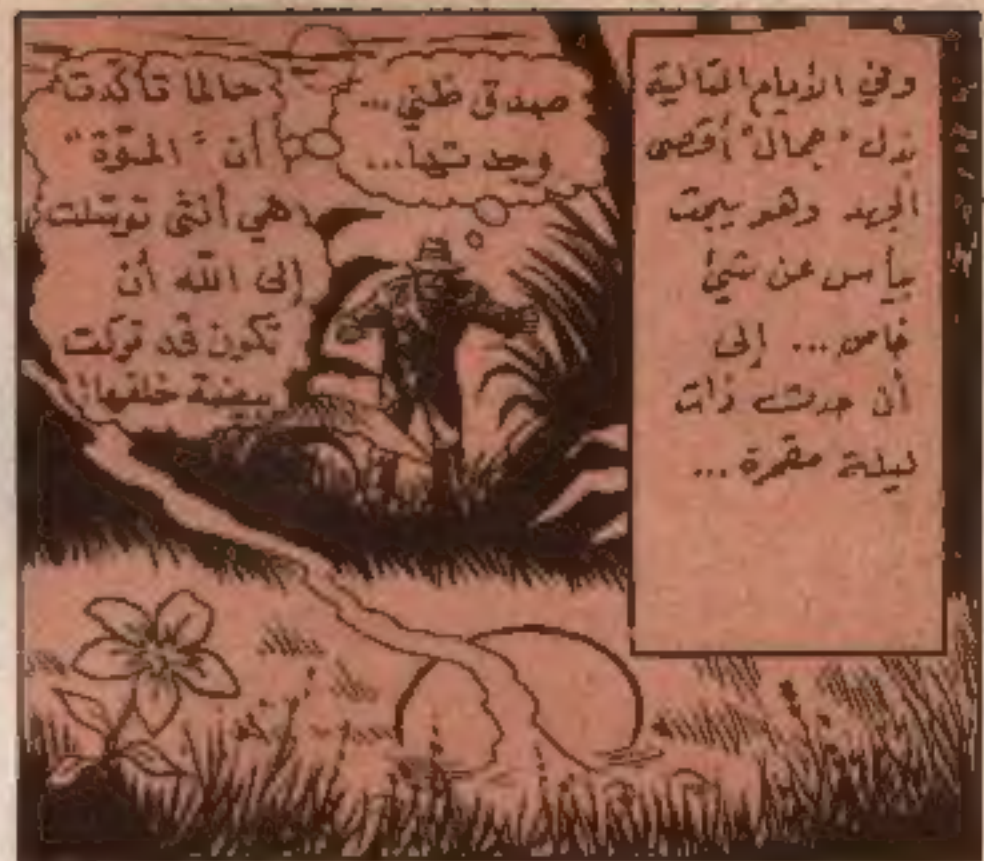 وفي الأيام التالية
بذل "جمال" أقصى
الجهد وهو يبحث
بيأس عن شيئ
خاص... إلى
أن حدث ذات
ليلة مقمرة...
صدق ظني...
وجدتها...
حالما تأكدت
أن "المتوّة"
هي أنثى توسّلت
إلى الله أن
تكون قد تركت
بيضة خلفها!